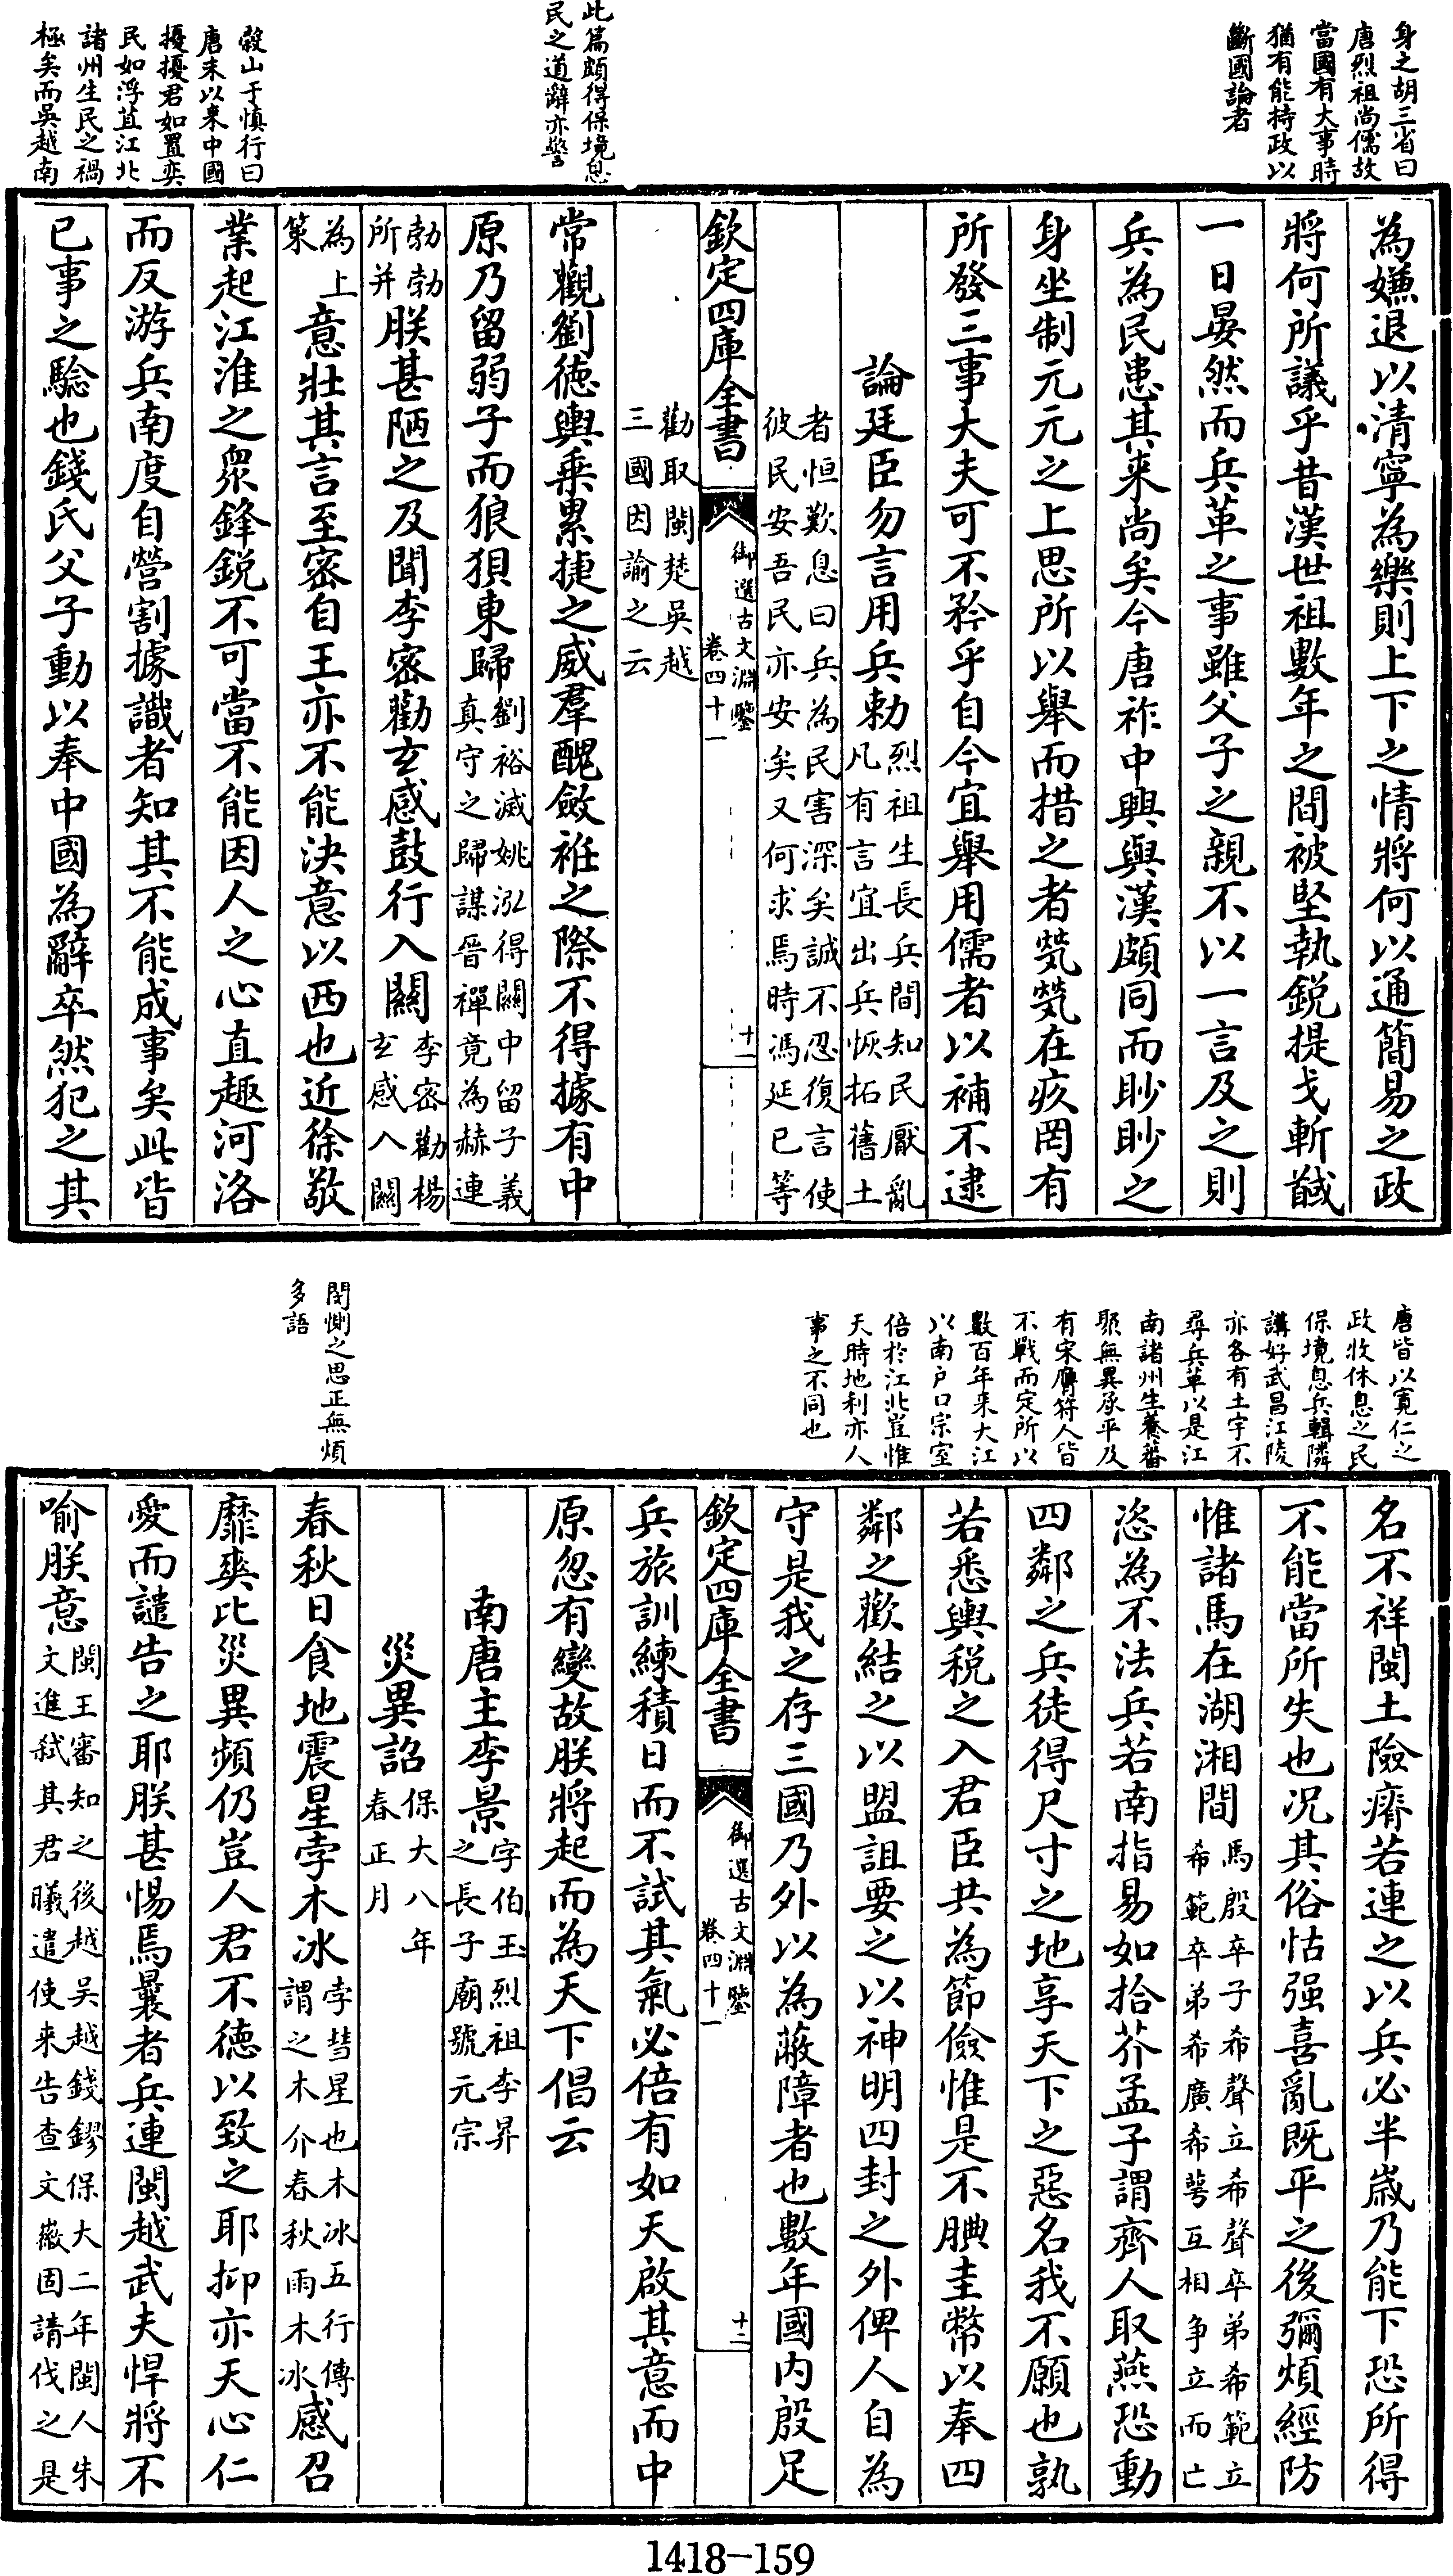 身之胡三省曰
唐烈祖尚儒故
當國有大事時
猶有能持政以
斷國論者
此篇頗得保境息
民之道辭亦警
穀山于慎行曰
唐末以來中國
擾擾君如置奕
民如浮苴江北
諸州生民之禍
極矣而吳越南
為嫌退以清寧為樂則上下之情將何以通簡易之政
將何所議乎昔漢世祖數年之間被堅執鋭提戈斬馘
一日晏然而兵革之事雖父子之親不以一言及之則
兵為民患其来尚矣今唐祚中興與漢頗同而眇眇之
身坐制元元之上思所以舉而措之者煢煢在疚罔有
所發三事大夫可不矜乎自今宜舉用儒者以補不逮
論廷臣勿言用兵勅烈祖生長兵間知民厭亂
凡有言宜出兵恢拓舊土
者恒歎息曰兵為民害深矣誠不忍復言使
彼民安吾民亦安矣又何求焉時馮延已等
欽定四庫全書
御選古文淵鑒
卷四十一
十一
勸取閩楚吳越
三國因諭之云
常觀劉德輿乘累捷之威羣醜斂衽之際不得據有中
原乃留弱子而狼狽東歸劉裕滅姚泓得關中留子義
真守之歸謀晉禪竟為赫連
勃勃
所并朕甚陋之及聞李密勸玄感鼓行入關李密勸楊
玄感入關
為上
策意壯其言至密自王亦不能決意以西也近徐敬
業起江淮之衆鋒鋭不可當不能因人之心直趣河洛
而反游兵南度自營割據識者知其不能成事矣此皆
已事之騐也錢氏父子動以奉中國為辭卒然犯之其
唐皆以寛仁之
政牧休息之民
保境息兵輯隣
講好武昌江陵
亦各有土宇不
尋兵革以是江
南諸州生養蕃
聚無異承平及
有宋膺符人皆
不戰而定所以
數百年来大江
以南戶口宗室
倍於江北豈惟
天時地利亦人
事之不同也
閔惻之思正無煩
多語
名不祥閩土險瘠若連之以兵必半嵗乃能下恐所得
不能當所失也况其俗怙强喜亂既平之後彌煩經防
惟諸馬在湖湘間馬殷卒子希聲立希聲卒弟希範立
希範卒弟希廣希萼互相争立而亡
恣為不法兵若南指易如拾芥孟子謂齊人取燕恐動
四鄰之兵徒得尺寸之地享天下之惡名我不願也孰
若悉輿税之入君臣共為節儉惟是不腆圭幣以奉四
鄰之歡結之以盟詛要之以神明四封之外俾人自為
守是我之存三國乃外以為蔽障者也數年國内殷足
欽定四庫全書
御選古文淵鑒
卷四十一
十二
兵旅訓練積日而不試其氣必倍有如天啟其意而中
原忽有變故朕將起而為天下倡云
南唐主李景字伯玉烈祖李昪
之長子廟號元宗
災異詔保大八年
春正月
春秋日食地震星孛木冰孛彗星也木冰五行傳
謂之木介春秋雨木冰感召
靡爽比災異頻仍豈人君不德以致之耶抑亦天心仁
愛而譴告之耶朕甚惕焉曩者兵連閩越武夫悍將不
喻朕意閩王審知之後越吳越錢鏐保大二年閩人朱
文進弑其君曦遣使来告查文徽固請伐之是
1418-159